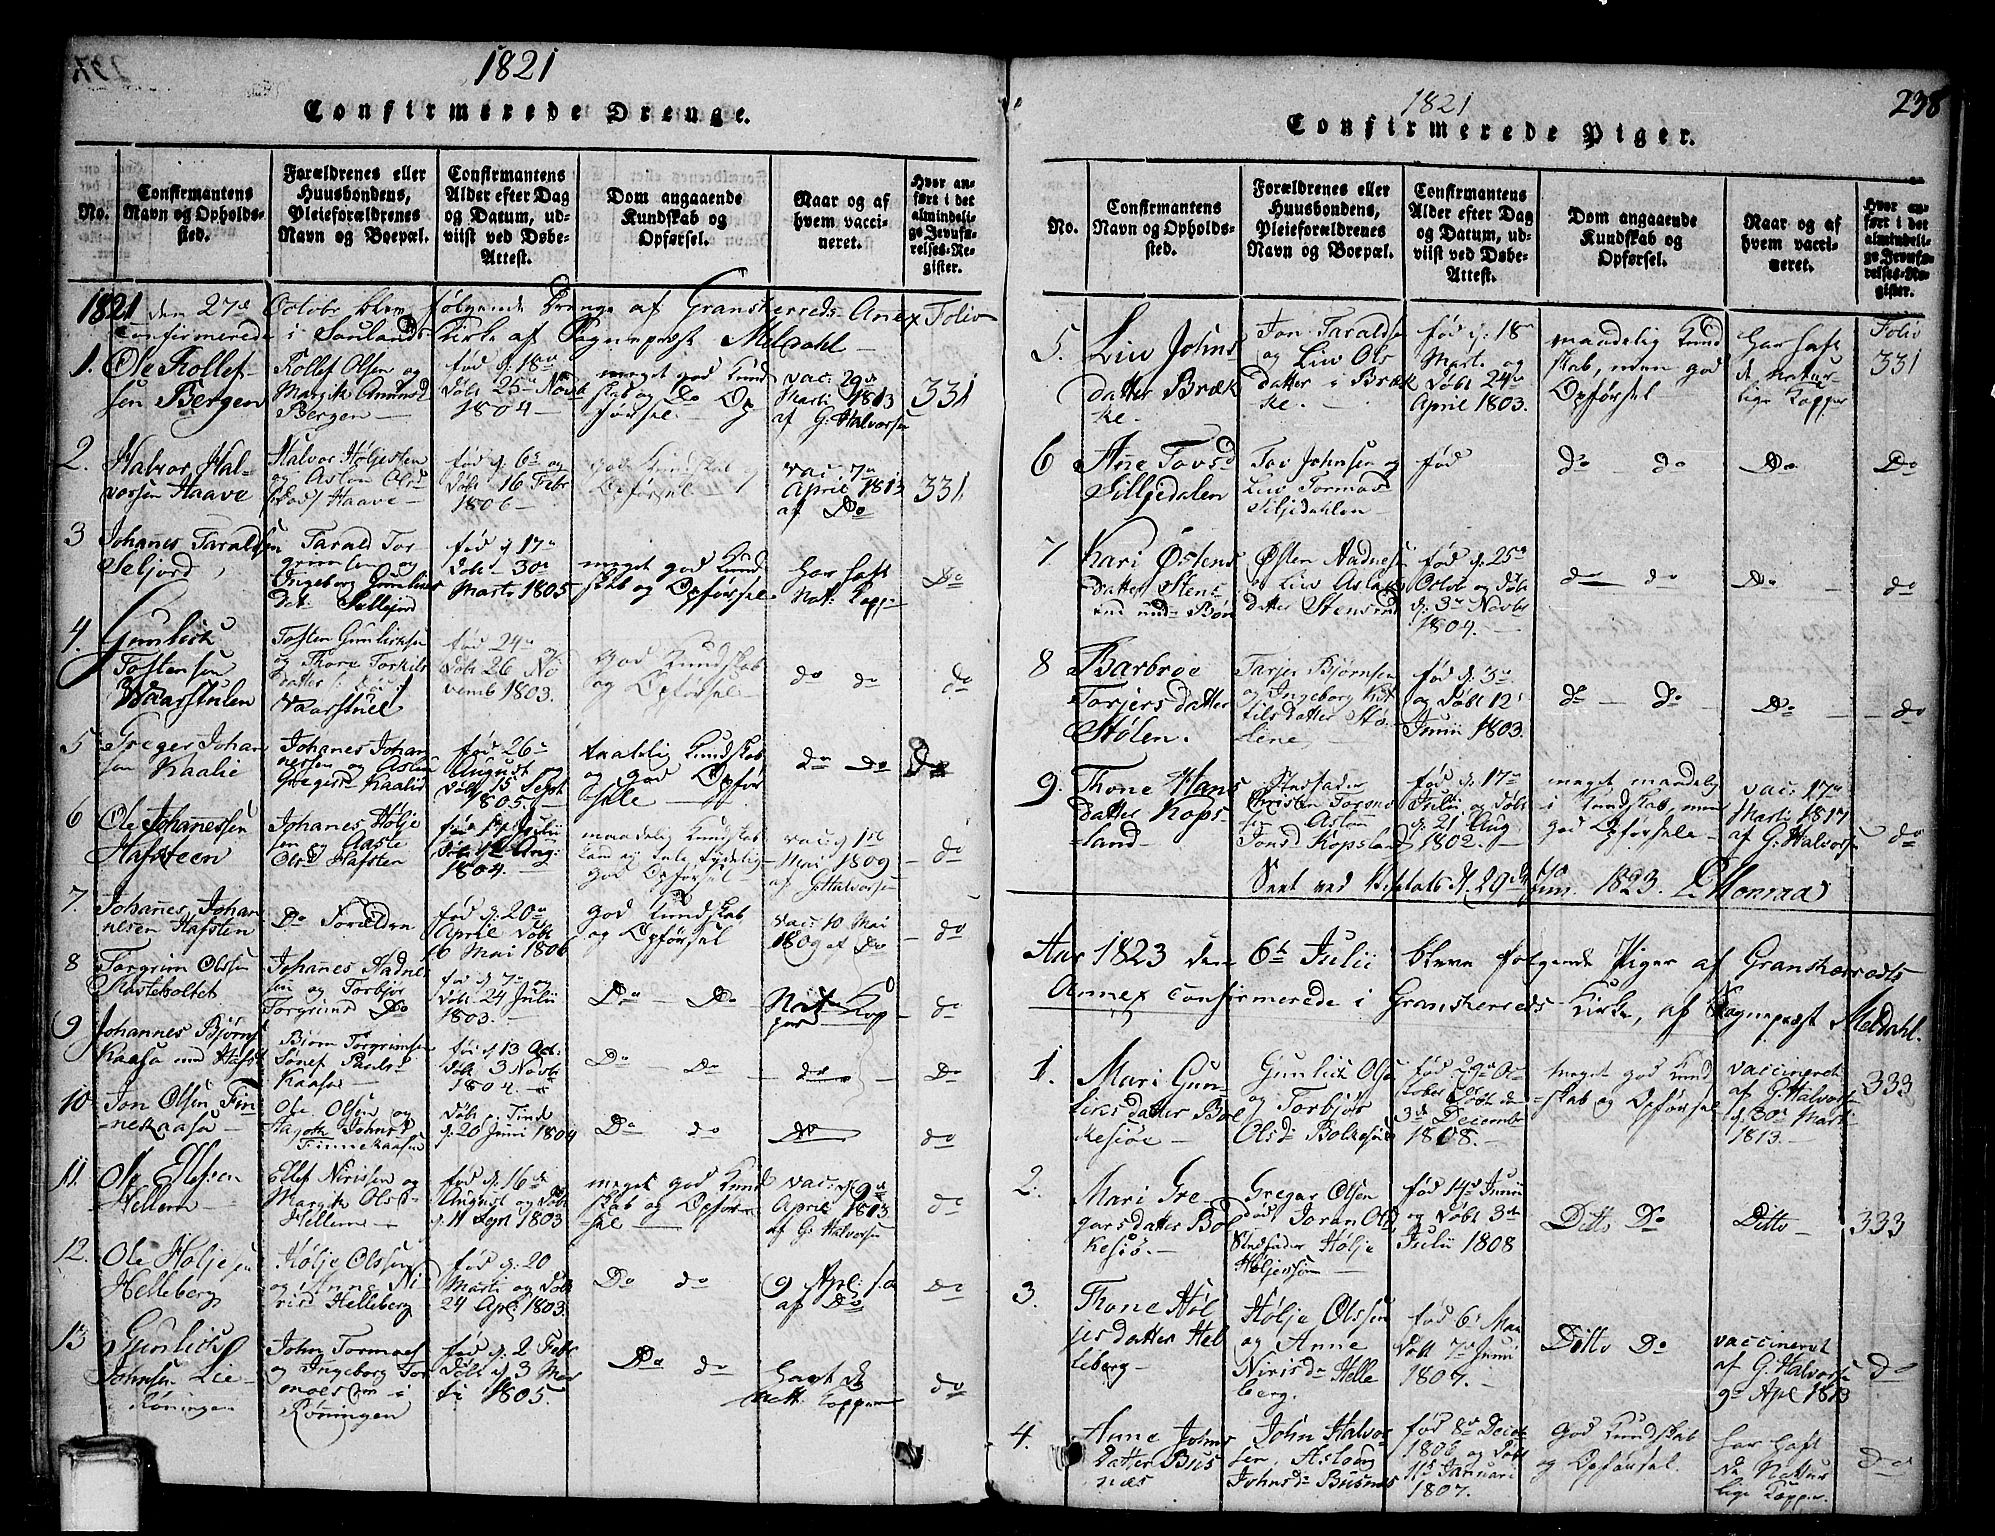 1821
Confirmerede Drenge.
No.
Confirmantens Navn og Opholdssted.
Forældrenes eller Huusbondens, Pleieforældrenes Navn og Boepæl.
Confirmantens Alder efter Dag og Datum, udviist ved Døbe-Attest.
Dom angaaende Kundskab og Opførsel.
Naar og af hvem vaccineret.
Hvor anført i det almindelige Jevnførelses-Register.
1821 den 27de Octobr blev følgende Drenge af Gransherreds Anex Folio
Confirmerede i Saulands Kirke af Sognepræst Meldahl
1. Ole Rollefsen Bergen
Rollef Olsen og Margith Amunsd Bergen
født d. 18de døbt 25de Novb 1804
meget god Kundskab og Do Opførsel
vac: 29de Marti 1813 af G. Halvorsen
331
2. Halvor Halvorsen Haave
Halvor Høljesen og Aslou Olsd Haave
født d. 6te og døbt 16 Febr 1806
god Kundskab og Opførsel
vac: 7de April 1813 af Do
331
3 Johanes Taraldsen Seljord
Tarald Torgrimsen og Ingeborg Gunliksdat: Sillejord
født d. 17de døbt 30de Marti 1805
meget god Kundskab og Opførsel
har haft Nat: Kopp
Do
4. Gunlich Tostensen Vaarstulen
Tosten Gunlicksen og Thore Torkilsdatter Vaarstuel
født 24de døbt 26 Novemb 1803.
God Kundskab og Opførsel
do do
do
5 Greger Johansen Kaalie
Johanes Johannessen og Aslou Gregersd Kaalie
født 26de August døbt 15 Sept 1805.
taalelig Kundskab og god Opførsele
do do
Do
6 Ole Johanessen Hafsteen
Johanes Høljesen og Aaste Olsd Hafsten
1804.
maadelig Kundskab, kand ej tale tydelig God Opførsel
vac: 1ste Mai 1809 af G. Halvorsen
do
7. Johanes Johannesen Hafsten
Do Forældre
født d. 20de April døbt 6 Mai 1806
God Kundskab og Opførsel
vac: 10 Mai 1809 af Do
do
8 Torgrim Olssen Masteboltet
Johanes Aadnesen og Torbjør Torgrimsd Do
født d. 7de og døbt 24 Julii 1803.
Do Do
Nat Kop
do
9 Johannes Bjørns Kaasa und Hafst
Bjørn Torgrimsen Kaasa
født d. 13 Oct: døbt 3 Novb 1804.
Do Do
do
Do
10 Jon Olsen Finnekaasa
Ole Olsen og Johnsd Finnekaasen
20 Juni 1804
Do do
Do
do
11. Ole Elefsen Hellem
Ellef Nirissen og Margith Olsd Hellem
født d. 16de August og døbt d. 11 Sept 1803
meget god Kundskab og Opførsel
vac: 9de April 1813 af G: Halvorsen
do
12. Ole Høljesen Helleberg
Hølje Olssen og Anne Nirisd Helleberg
født d. 20 Marti og døbt 24 Apl: 1803.
Do do
9 Apl: af Do
do
13 Gunlich Johnsen Lie Røningen
John Tormoes og Ingeborg Tormoes i Røningen
født d. 2 Febr døbt d. 3 Marti 1805.
Do do
havt de natt. Kopper
do
1821
238
Confirmerede Piger.
No.
Confirmantens Navn og Opholdssted.
Forældrenes eller Huusbondens, Pleieforældrenes Navn og Boepæl.
Confirmantens Alder efter Dag og Datum, udviist ved Døbe-Attest.
Dom angaaende Kundskab og Opførsel.
Naar og af hvem vaccineret.
Hvor anført i det almindelige Jevnførelses-Register.
5. Liv Johnsdatter Brække.
Jon Taralds og Liv Olsdatter i Brække.
født d. 18de Marti og døbt 24de April 1803.
maadelig Kundskab, men god Opførsel
har haft de naturlige Kopper
Folio 331
6 Anne Tovsd Silljedalen
Tov Johnsen og Liv Tormods Siljedahlen
født
do do
Do
Do
7 Kari Østensdatter Stensrud
Østen Aadnes og Liv Aslaksdatter Stensrud
født d. 25de Octob og døbt d. 3de Novbr 1804.
do do
Do
do
8 Barbroe Torjersdatter Stølen.
Tarje Bjørnsen og Ingeborg Kittilsdatter Stølene
født d. 3de og døbt 12 Junii 1803.
do do
Do
do
9. Thone Hansdatter Kopsland
Stedfader Christen Aslou Jonsd Kopsland
født d. 17de Julii og døbt d. 21 Aug 1802.
meget maadelig i Kundskab, men god Opførsele
vac: 17de Marti 1817 af G: Halvorsen
do
Seet ved Visitats d. 29de Juni 1823. Monrad
Aar 1823 den 6te Julii bleve følgende Piger af Gransherreds
Annex confirmerede i Gransherreds Kirke, af Sognepræst Meldahl.
1. Mari Gunliksdatter Bolkesjøe
Gunlich Olsen og Torbjør Olsd: Bolkesjøe
født 29de October Døbt den 3de Decemb 1808.
meget god Kundskab og Opførsel
vaccineret af G. Halvors d. 30te Marti 1813.
333
2. Mari Gregarsdatter Bolkesiø.
Gregar Olsen død, Joran Olsd Stedfader Hølje Høljessen
født 14de Junii og døbt 3de Julii 1808
Ditto Do
Ditto
333
3. Thone Høljesdatter Helleberg
Hølje Olssen og Anne Nirisd: Helleberg.
født 6te Mai døbt 7de Junii 1807.
Ditto Do
vaccineret af G. Halvorsen 9de Apl 1813
do
4. Anne Johnsdatter Busnæs
John Halvorsen, Aslaug Johnsd: Busnæs
født 8de Decbr 1806 og døbt 11te Januari 1807.
God Kundskab og Opførsel.
har haft De Naturlige Kopper.
do